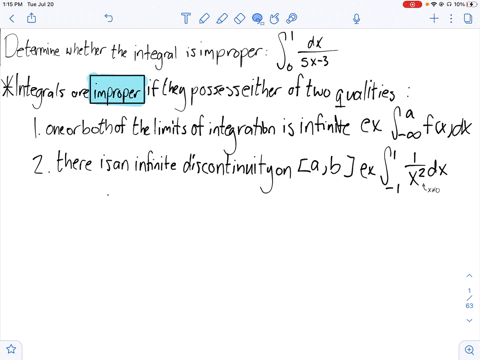 1:15 PM Tue Jul 20
10%
Determine whether the integral is improper: ∫₀¹ dx/(5x-3)
*Integrals are improper if they possess either of two qualities:
1. one or both of the limits of integration is infinite ex ∫_{-∞}^{a} f(x)dx
2. there is an infinite discontinuity on [a,b] ex ∫_{-1}^{1} 1/x² dx
x≠0
1
/
63